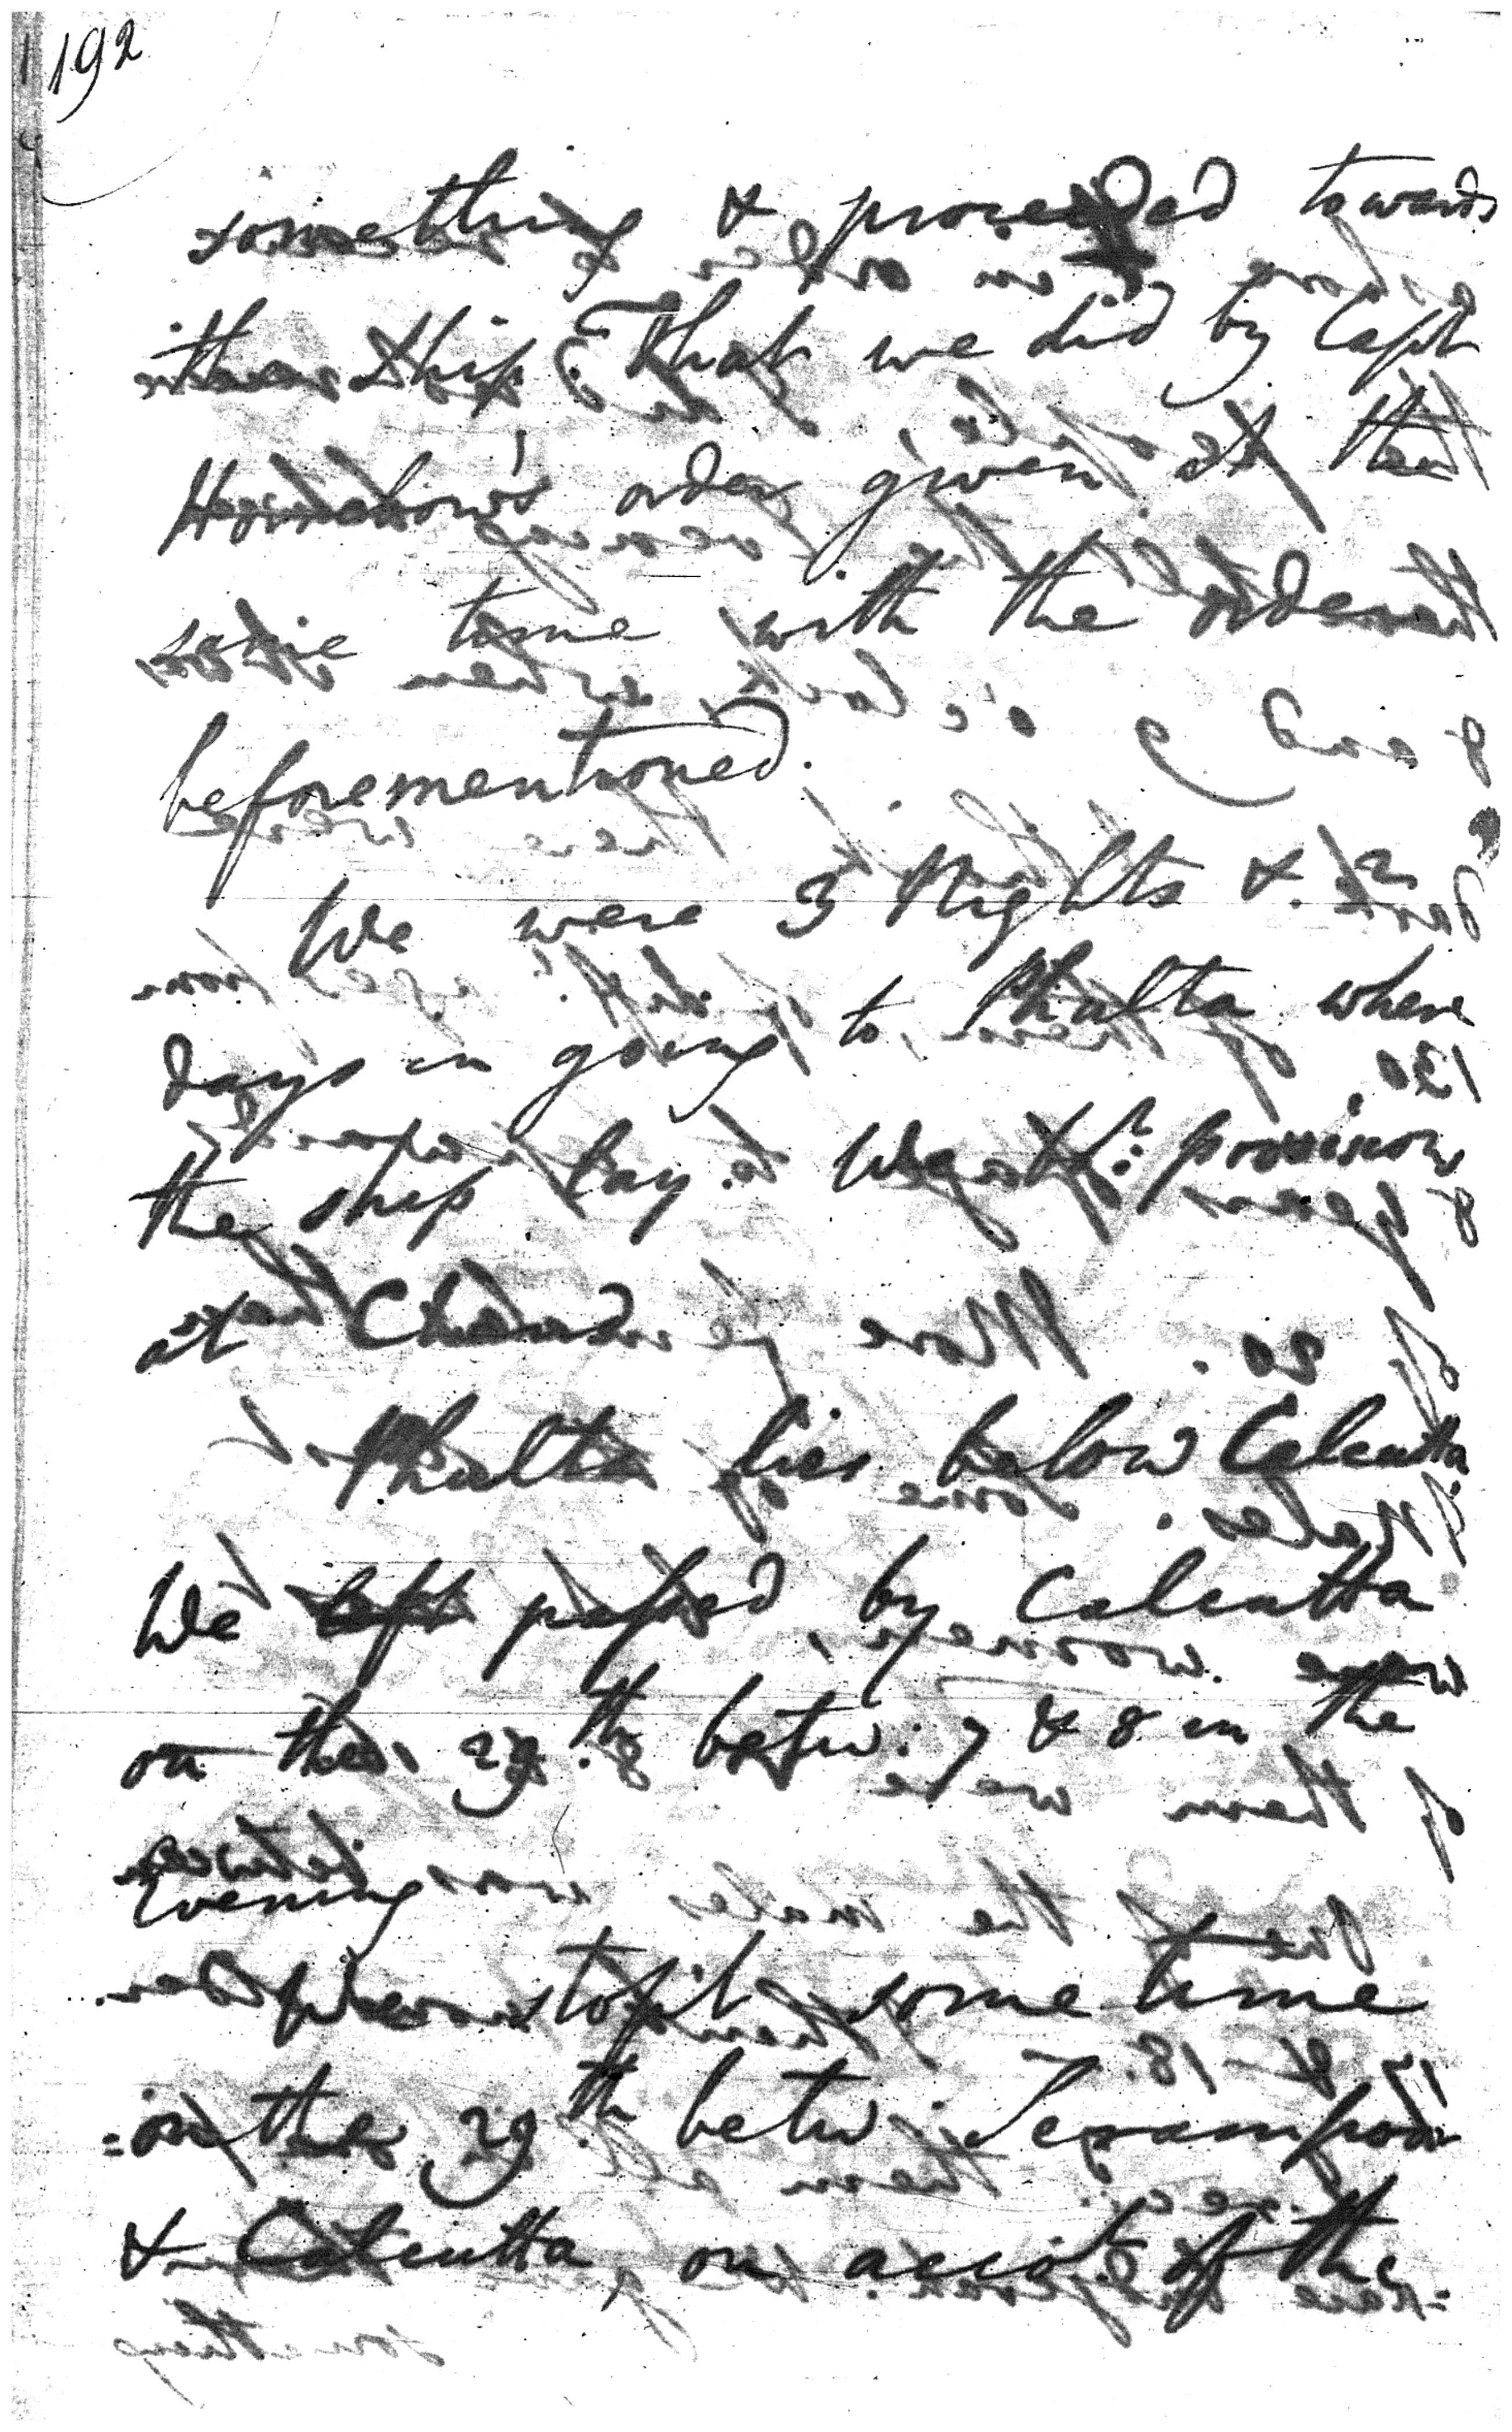 192
something & proceeded towards
the ship. That we did by Capt
Horrebow's order given at the
same time with the orders
beforementioned.
We were 3 Nights & 2
days in going to Phalta where
the ship lay. We got provisions
at
Phalta lies below Calcutta
We passed by Calcutta
on the 29.th betw. 7 & 8 in the
Evening
stopt some time
on the 29.th betw. Serampore
& Calcutta, on acct of the